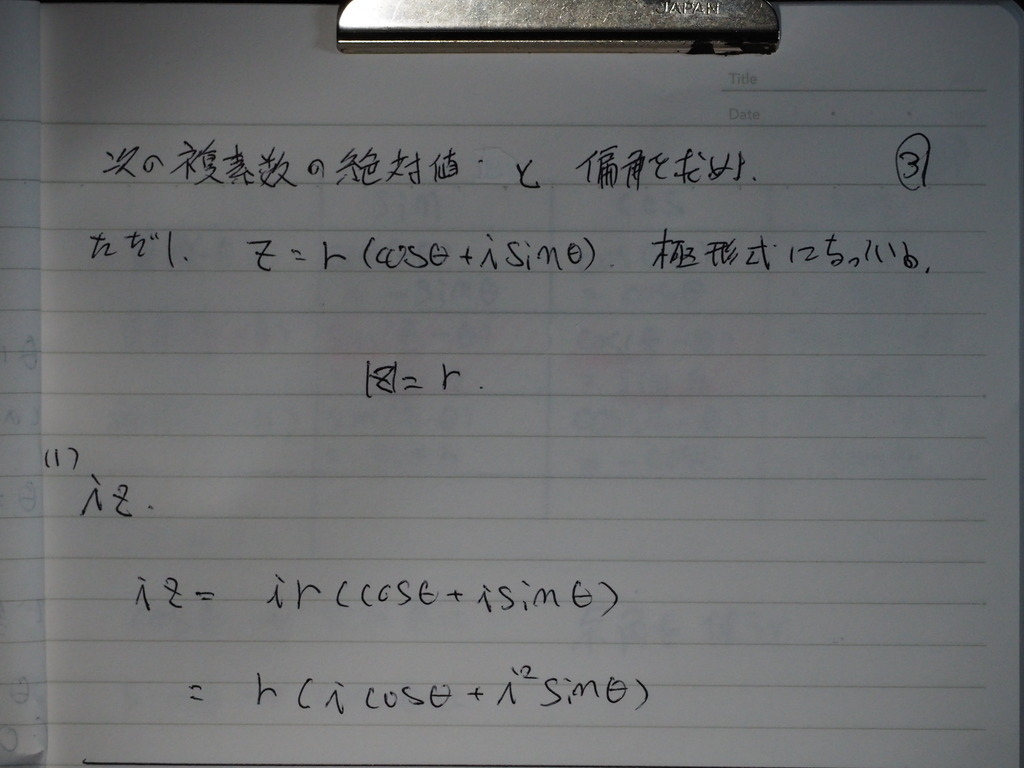 JAPAN
Title
Date
次の複素数の絶対値 と 偏角を求めよ. ③
ただし. z = r (cosθ + i sinθ). 極形式になっている.
|z| = r.
(1)
iz.
iz = ir (cosθ + i sinθ)
= r (i cosθ + i² sinθ)